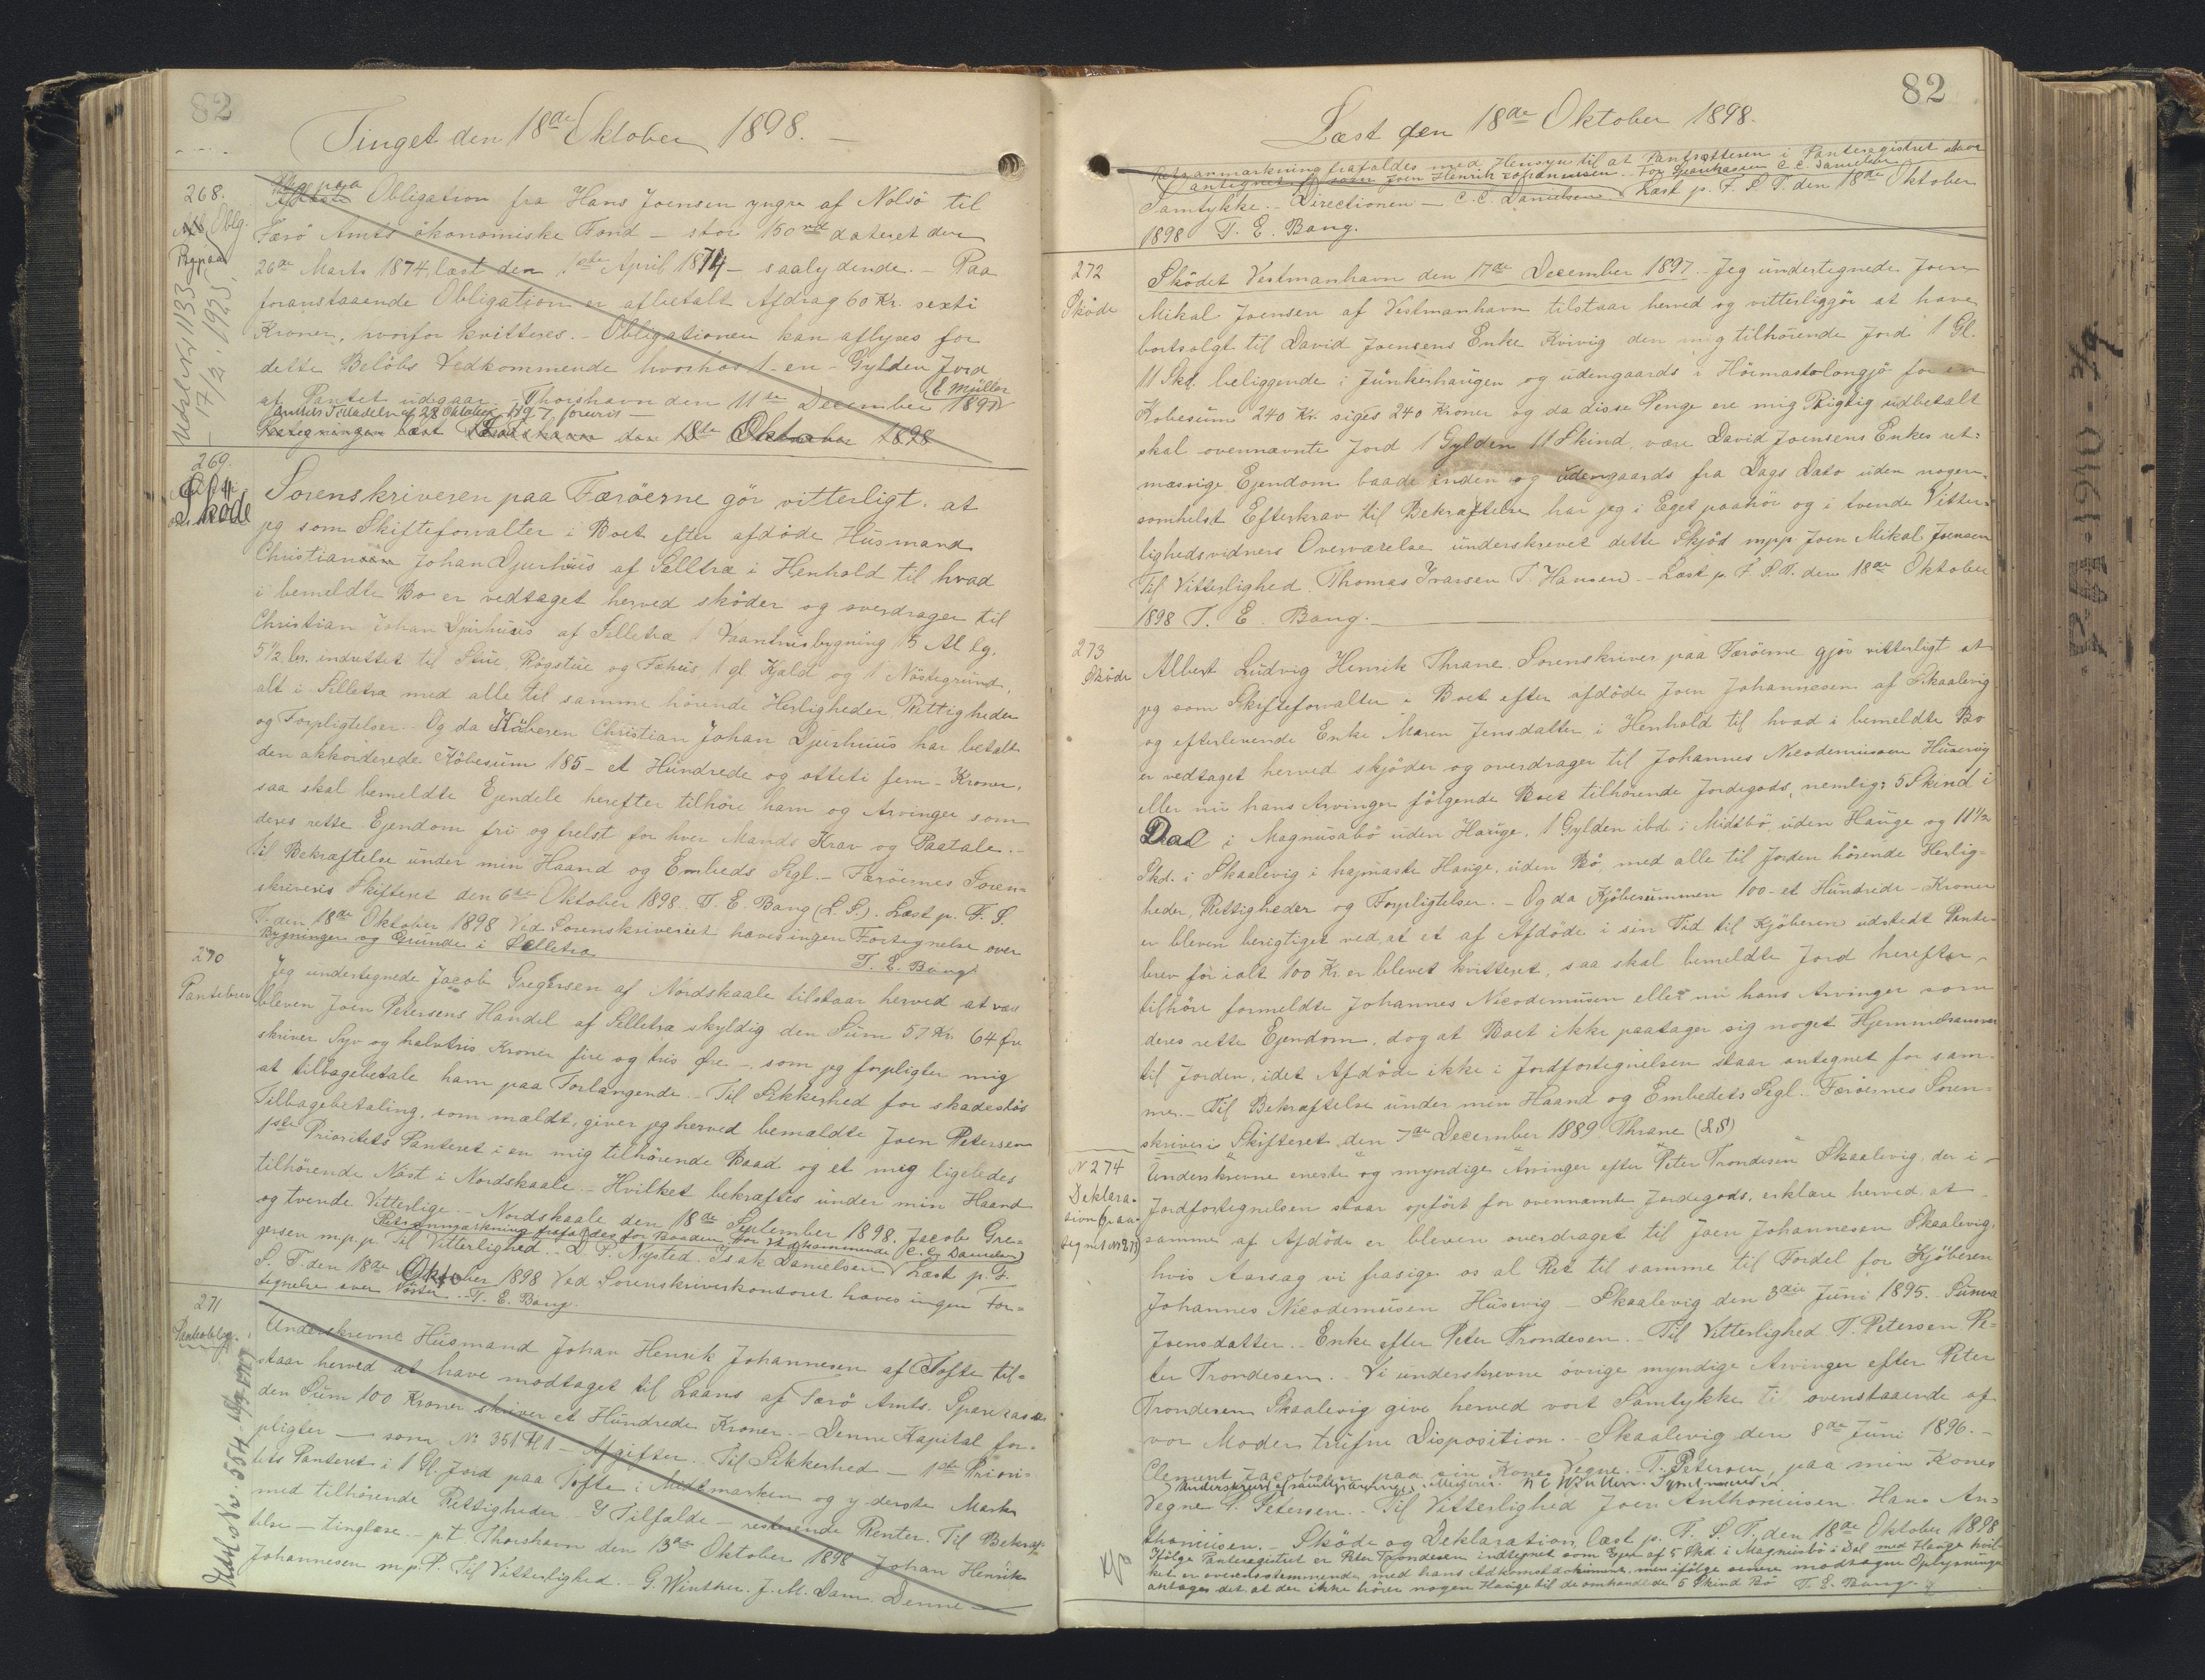 82
Tinget den 18de Oktober 1898. —
268.
Afl. Oblg.
Paa
Obligation fra Hans Joensen yngre af Nolsö til
Færö Amts økonomiske Fond – stor 150 rd dateret den
26de Marts 1874, læst den 1ste April 1874 – saalydende. – Paa
foranstaaende Obligation er afbetalt Afdrag 60 Kr. sexti
Kroner, hvorfor kvitteres. – Obligationen kan aflyses for
dette Belöbs Vedkommende hvorhos 1 – en – Gylden Jord
af Pantet udgaar. – Thorshavn den 11te December 1897
E Müller
Amtets Tilladelse af 28 Oktober 1897 foreviist –
læst den 18de Oktober 1898
17/2. 1925.
269.
Sköde
Sorenskriveren paa Færöerne gör vitterligt, at
jeg som Skifteforvalter i Boet efter afdöde Husmand
Christian Johan Djurhuus af Selletræ i Henhold til hvad
i bemeldte Bo er vedtaget herved sköder og overdrager til
Christian Johan Djurhuus af Selletræ 1 Vaanhusbygning 15 Al lg.
5 1/2 br. indrettet til Stue, Rögstue og Fæhus, 1 gl Kjald og 1 Nöstegrund,
alt i Selletræ med alle til samme hörende Herligheder, Rettigheder
og Forpligtelser. – Og da Köberen Christian Johan Djurhuus har betalt
den akkorderede Köbesum 185 – et Hundrede og otteti fem – Kroner,
saa skal bemeldte Ejendele herefter tilhöre ham og Arvinger som
deres rette Ejendom fri og frelst for hver Mands Krav og Paatale. –
Til Bekræftelse under min Haand og Embeds Segl. – Færöernes Soren=
skriveris Skifteret den 6te Oktober 1898. T. E. Bang (L. S.). Læst p. F. S.
T. den 18de Oktober 1898 Ved Sorenskriveriet haves ingen Fortegnelse over
Bygninger og Grunde i Selletræ
T. E. Bang
270
Pantebrev
Jeg undertegnede Jacob Gregersen af Nordskaale tilstaar herved at være
bleven Joen Petersens Handel af Selletræ skyldig den Sum 57 Kr. 64 Øre
skriver Syv og halvtris Kroner fire og tris Øre –, som jeg forpligter mig
at tilbagebetale ham paa Forlangende. – Til Sikkerhed for skadeslös
Tilbagebetaling, som mældt, giver jeg herved bemældte Joen Petersen
1ste Prioritets Panteret i en mig tilhörende Baad og et mig ligeledes
tilhörende Nöst i Nordskaale. – Hvilket bekræftes under min Haand
og tvende Vitterlige. – Nordskaale den 18de September 1898. Jacob Gre=
Retsanmærkning frafaldes for Baaden. For Vedkommende C. C. Danielsen
gersen m.p.p. Til Vitterlighed. D. P. Nysted. Isak Danielsen Læst p. F.
S. T. den 18de Oktober 1898 Ved Sorenskriverkontoret haves ingen For=
tegnelse over Nöster. T. E. Bang.
271
Panteoblg.
Underskrevne Husmand Johan Henrik Johannesen af Tofte til=
staar herved at have modtaget til Laans af Færö Amts Sparekasse
den Sum 100 Kroner skriver et Hundrede Kroner. – Denne Kapital for=
pligter – som No 351 – Afgifter. Til Sikkerhed – 1ste Priori=
tets Panteret i 1 Gl. Jord paa Tofte i Midtmarken og yderste Marken
med tilhörende Rettigheder. I Tilfælde – resterende Renter. Til Bekræf=
telse – tinglæse. – p.t. Thorshavn den 13de Oktober 1898 Johan Henrik
Johannesen m.p.P. Til Vitterlighed. – G. Winther. J. M. Dam. Denne –
82
Læst den 18de Oktober 1898.
Retsanmærkning frafaldes med Hensyn til at Pantsætteren i Panteregistret staar
antegnet som Joen Henrik Johannesen. For Sparekassen C. C. Danielsen
Samtykke. – Directionen – C. C. Danielsen Læst p. F. S. T. den 18de Oktober
1898 T. E. Bang.
272
Sköde
Sködet Vestmanhavn den 17de December 1897. Jeg undertegnede Joen
Mikal Joensen af Vestmanhavn tilstaar herved og vitterliggör at have
bortsolgt til David Joensens Enke Kvivig den mig tilhörende Jord 1 Gl.
11 Skd. beliggende i Junkerhaugen og udengaards i Hörmastolongjö for en
Kobesum 240 Kr. siges 240 Kroner og da disse Penge ere mig Rigtig udbetalt
skal ovennævnte Jord 1 Gylden 11 Skind være David Joensens Enkes ret=
mæssige Ejendom baade inden og udengaards fra Dags Dato uden nogen
somhelst Efterkrav til Bekræftelse har jeg i Eget paahör og i tvende Vitter=
lighedsvidners Overværelse underskrevet dette Skjöd mpp. Joen Mikal Joensen
Til Vitterlighed. Thomas Ivarsen T. Hansen. – Læst p. F. S. T. den 18de Oktober
1898 T. E. Bang. –
273
Sköde
Albert Ludvig Henrik Thrane, Sorenskriver paa Færöerne gjör vitterligt at
jeg som Skifteforvalter i Boet efter afdöde Joen Johannesen af Skaalevig
og efterlevende Enke Maren Jensdatter, i Henhold til hvad i bemeldte Bo
er vedtaget herved skjöder og overdrager til Johannes Nicodemussen Husevig
eller nu hans Arvinger fölgende Boet tilhörende Jordegods, nemlig: 5 Skind i
Dal i Magnusabö uden Hauge, 1 Gylden ibd. i Midtbö uden Hauge og 11 1/2
Skd. i Skaalevig i hajmaste Hauge, uden Bö med alle til Jorden hörende Herlig=
heder, Rettigheder og Forpligtelser. – Og da Kjöbesummen 100 – et Hundrede – Kroner
er bleven berigtiget ved, at et af Afdöde i sin Tid til Kjöberen udstedt Pante=
brev for ialt 100 Kr. er blevet kvitteret, saa skal bemeldte Jord herefter
tilhöre formeldte Johannes Nicodemusen eller nu hans Arvinger som
deres rette Ejendom, dog at Boet ikke paatager sig noget Hjemmelsansvar
til Jorden, idet Afdöde ikke i Jordfortegnelsen staar antegnet for sam=
me. – Til Bekræftelse under min Haand og Embedets Segl. Færöernes Soren=
skriveris Skifteret den 7de December 1889. Thrane (L.S)
N 274
Deklara=
tion
Underskrevne eneste og myndige Arvinger efter Peter Trondesen Skaalevig, der i
Jordfortegnelsen staar opfört for ovennævnte Jordegods, erklære herved, at
samme af Afdöde er bleven overdraget til Joen Johannesen Skaalevig,
hvis Aarsag vi frasige os al Ret til samme til Fordel for Kjöberen
Johannes Nicodemusen Husevig – Skaalevig den 3die Juni 1895. Sunva
Joensdatter. – Enke efter Peter Trondesen. Til Vitterlighed T. Petersen Pe=
ter Trondesen. – Vi underskrevne övrige myndige Arvinger efter Peter
Trondesen Skaalevig give herved vort Samtykke til ovenstaaende af
vor Moder trufne Disposition. – Skaalevig den 8de Juni 1896. –
Clement Jacobsen paa sin Kones Vegne. T. Petersen, paa min Kones
Vegne T. Petersen. – Til Vitterlighed Joen Anthoniusen. Hans An=
thoniusen. – Sköde og Deklaration læst p. F. S. T. den 18de Oktober 1898
Ifölge Panteregistret er Peter Trondesen indtegnet som Ejer af 5 Skd i Magnusbö i Dal med Hauge hvil=
ket er overensstemmende med hans Adkomstdokument, men ifölge senere modtagne Oplysninger
antages det, at der ikke hörer nogen Hauge til de omhandlede 5 Skind Bö T. E. Bang.